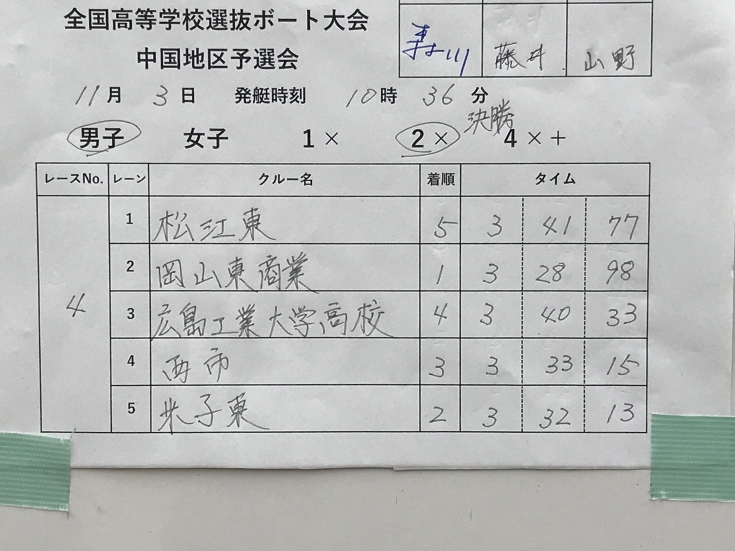 全国高等学校選抜ボート大会
中国地区予選会
藤井 山野
11月 3日 発艇時刻 10時 36分
決勝
男子 女子 1× 2× 4×+
レースNo. レーン クルー名 着順 タイム
4
1 松江東 5 3 41 77
2 岡山東商業 1 3 28 98
3 広島工業大学高校 4 3 40 33
4 西市 3 3 33 15
5 米子東 2 3 32 13